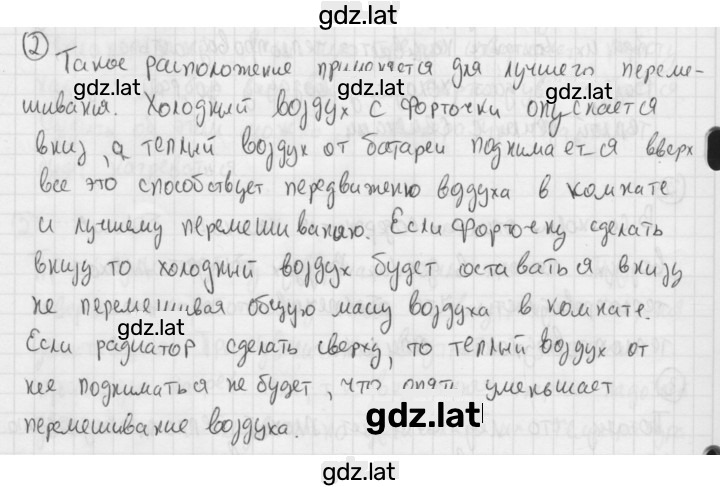 gdz.lat
② Такое расположение применяется для лучшего переме-
gdz.lat gdz.lat
шивания. Холодный воздух с форточки опускается
вниз, а теплый воздух от батареи поднимается вверх
все это способствует передвижению воздуха в комнате
и лучшему перемешиванию. Если форточку сделать
внизу то холодный воздух будет оставаться внизу
не перемешивая общую массу воздуха в комнате.
gdz.lat
Если радиатор сделать сверху, то теплый воздух от
нее подниматься не будет, что опять уменьшает
gdz.lat
перемешивание воздуха.
gdz.lat